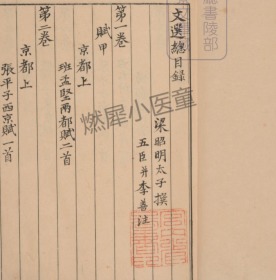 文選總目錄
梁昭明太子撰
五臣并李善注
第一卷
賦甲
京都上
班孟堅兩都賦二首
第二卷
京都上
張平子西京賦一首
燃犀小医童
書陵部